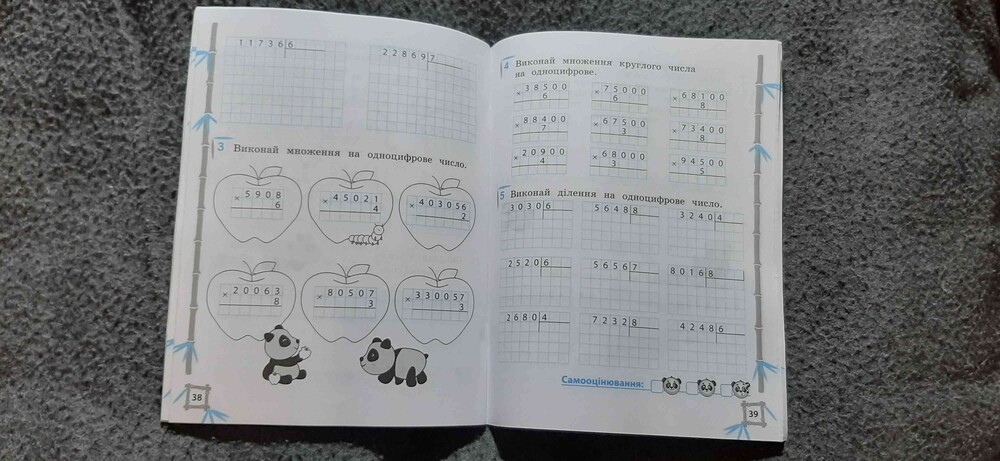 117366
228697
3 Виконай множення на одноцифрове число.
×5908
6
×45021
4
×403056
2
×20063
8
×80507
3
×330057
3
38
4 Виконай множення круглого числа
на одноцифрове.
×38500
6
×75000
6
×68100
8
×88400
7
×67500
3
×73400
8
×20900
4
×68000
3
×94500
5
5 Виконай ділення на одноцифрове число.
30306
56488
32404
25206
56567
80168
26804
72328
42486
Самооцінювання:
39